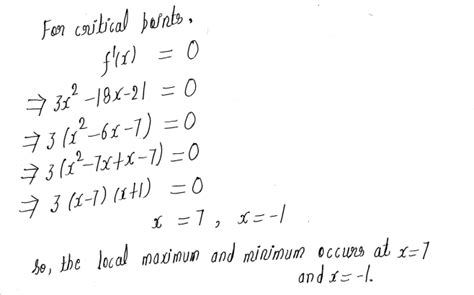 For critical points,
f'(x) = 0
⇒ 3x² -18x-21 = 0
⇒ 3(x²-6x-7) = 0
⇒ 3(x²-7x+x-7) = 0
⇒ 3(x-7)(x+1) = 0
x = 7, x=-1
So, the local maximum and minimum occurs at x=7
and x=-1.